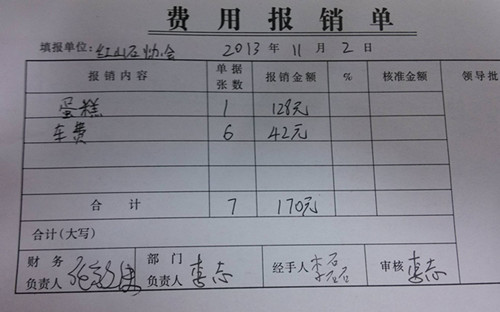 费用报销单
填报单位：红山石协会 2013年11月2日
报销内容 单据张数 报销金额 % 核准金额 领导批
蛋糕 1 128元
车费 6 42元
合计 7 170元
合计(大写)
财务负责人 部门负责人 李志 经手人 李石石 审核 李志